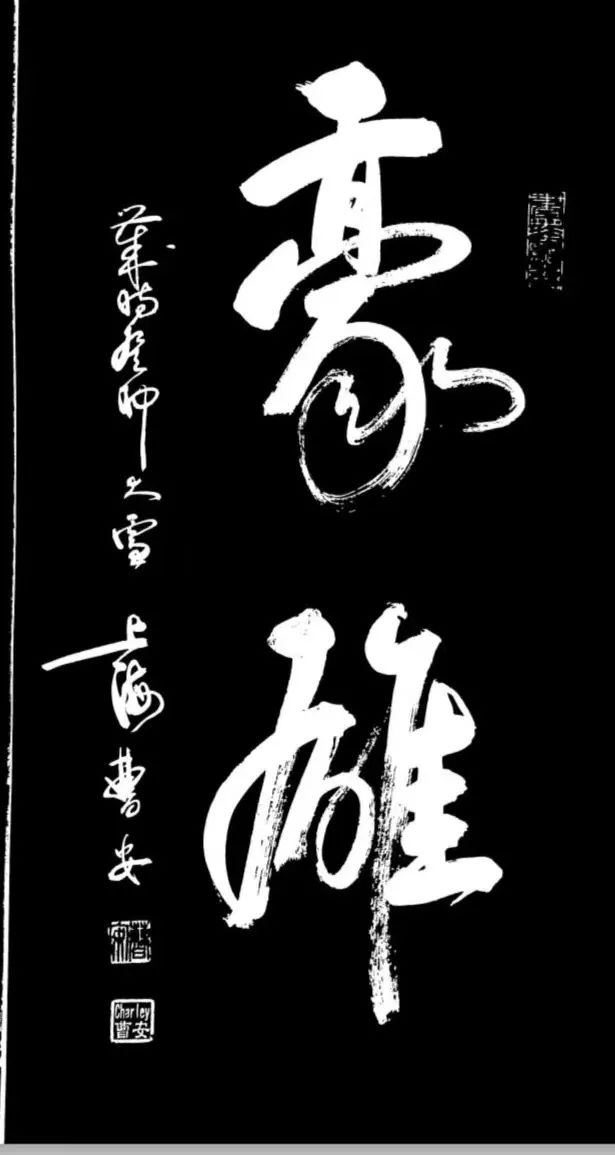 豪雄
歲時癸卯大雪 上海曹安
Charley
曹安